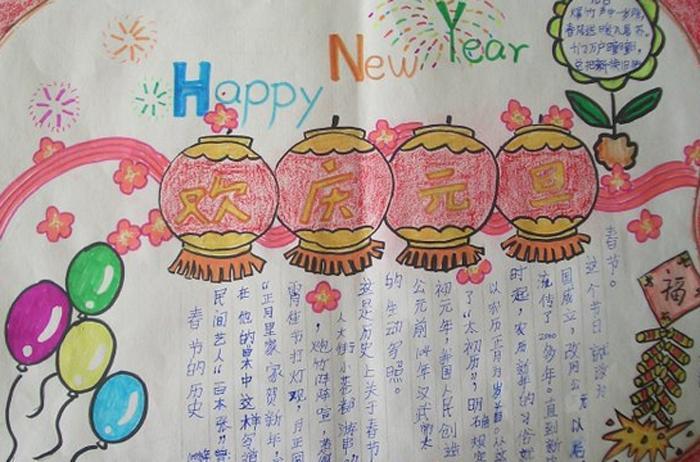 Happy New Year
欢庆元旦
爆竹声中一岁除,
春风送暖入屠苏。
千门万户曈曈日,
总把新桃换旧符
福
春节的历史
民间艺人“百本张”
在他的本中这样写道
“正月里家家贺新年,
宵佳节打灯观,月正圆
炮竹阵阵宣,
人大街小花都串”
这是历史上关于春节
的生动写照。
公元前104年汉武帝太
初元年,我国人民创造
了“太初历”,明确规定
以农历正月为岁首。从这
时起,农历新年的习俗就
流传了2000多年。直到新
国成立,改用公元以后
这个节日就改为
春节。